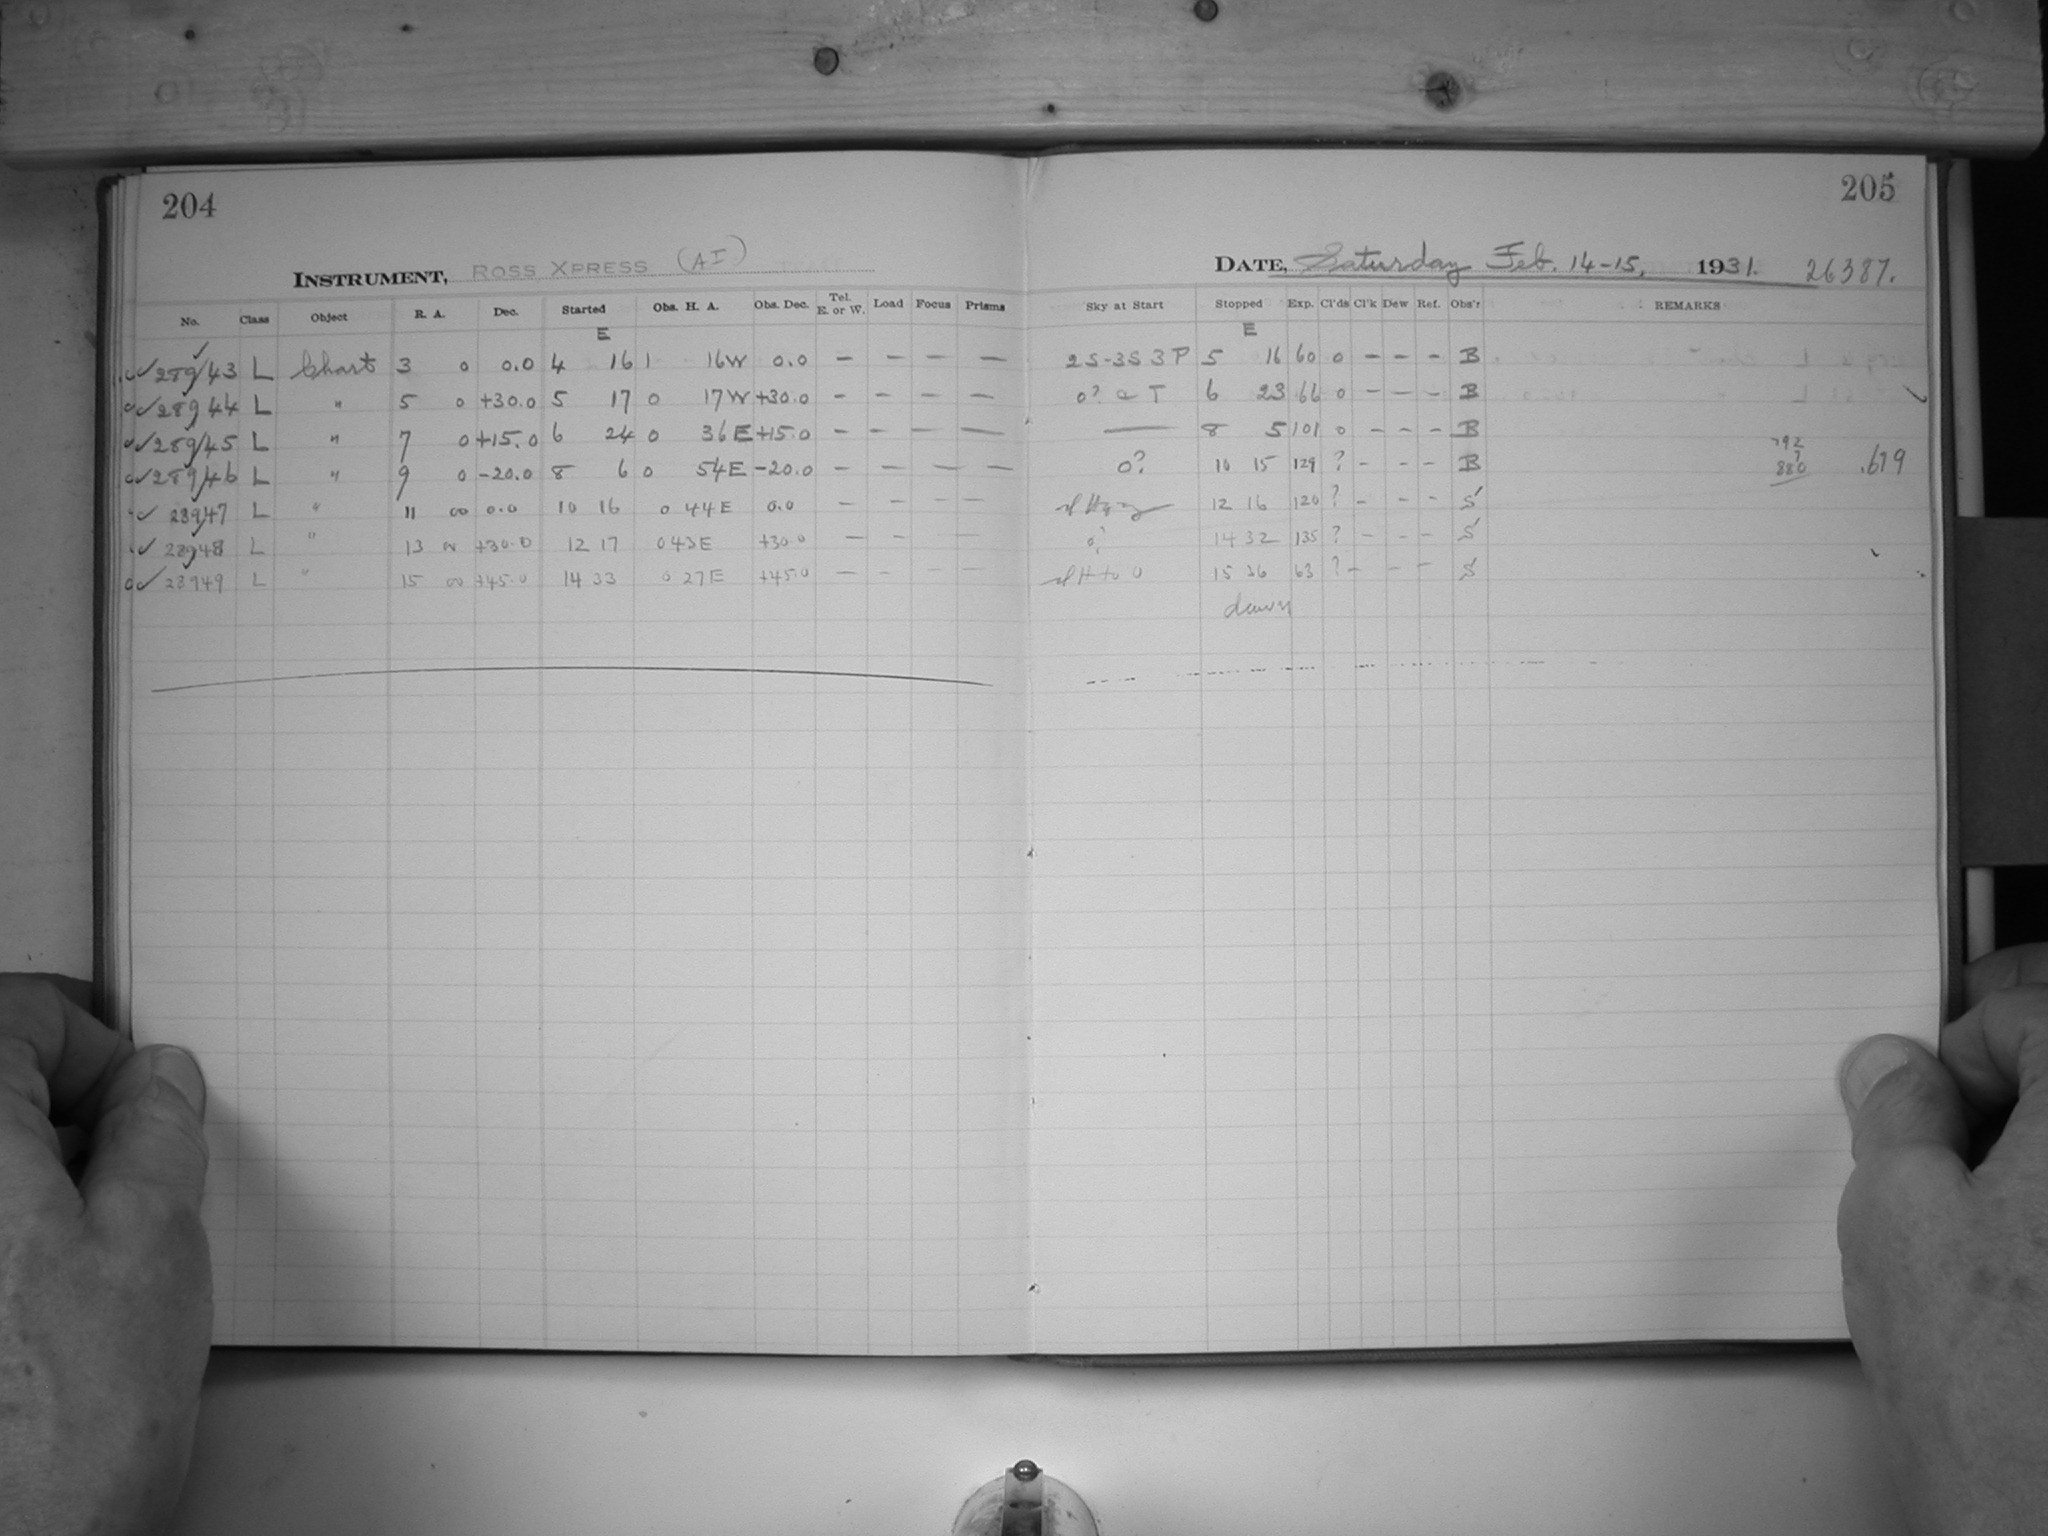 204
INSTRUMENT, ROSS XPRESS (AI)
No. Class Object R. A. Dec. Started Obs. H. A. Obs. Dec. Tel. E. or W. Load Focus Prisms
E
✓ 28943 L Chart 3 0 0.0 4 16 1 16W 0.0 — — — —
✓ 28944 L " 5 0 +30.0 5 17 0 17W +30.0 — — — —
✓ 28945 L " 7 0 +15.0 6 24 0 36E +15.0 — — — —
✓ 28946 L " 9 0 -20.0 8 6 0 54E -20.0 — — — —
✓ 28947 L " 11 00 0.0 10 16 0 44E 0.0 — — — —
✓ 28948 L " 13 00 +30.0 12 17 0 43E +30.0 — — —
✓ 28949 L " 15 00 +45.0 14 33 0 27E +45.0 — — — —
205
DATE, Saturday Feb. 14-15, 1931. 26387.
Sky at Start Stopped Exp. Cl'ds Cl'k Dew Ref. Obs'r REMARKS
E
2S-3S 3P 5 16 60 0 — — — B
0? T 6 23 66 0 — — — B
— 8 5 101 0 — — — B
0? 10 15 129 ? — — — B 880 .619
12 16 120 ? — — — S
0? 14 32 135 ? — — — S
15 36 63 ? — — — S
dawn